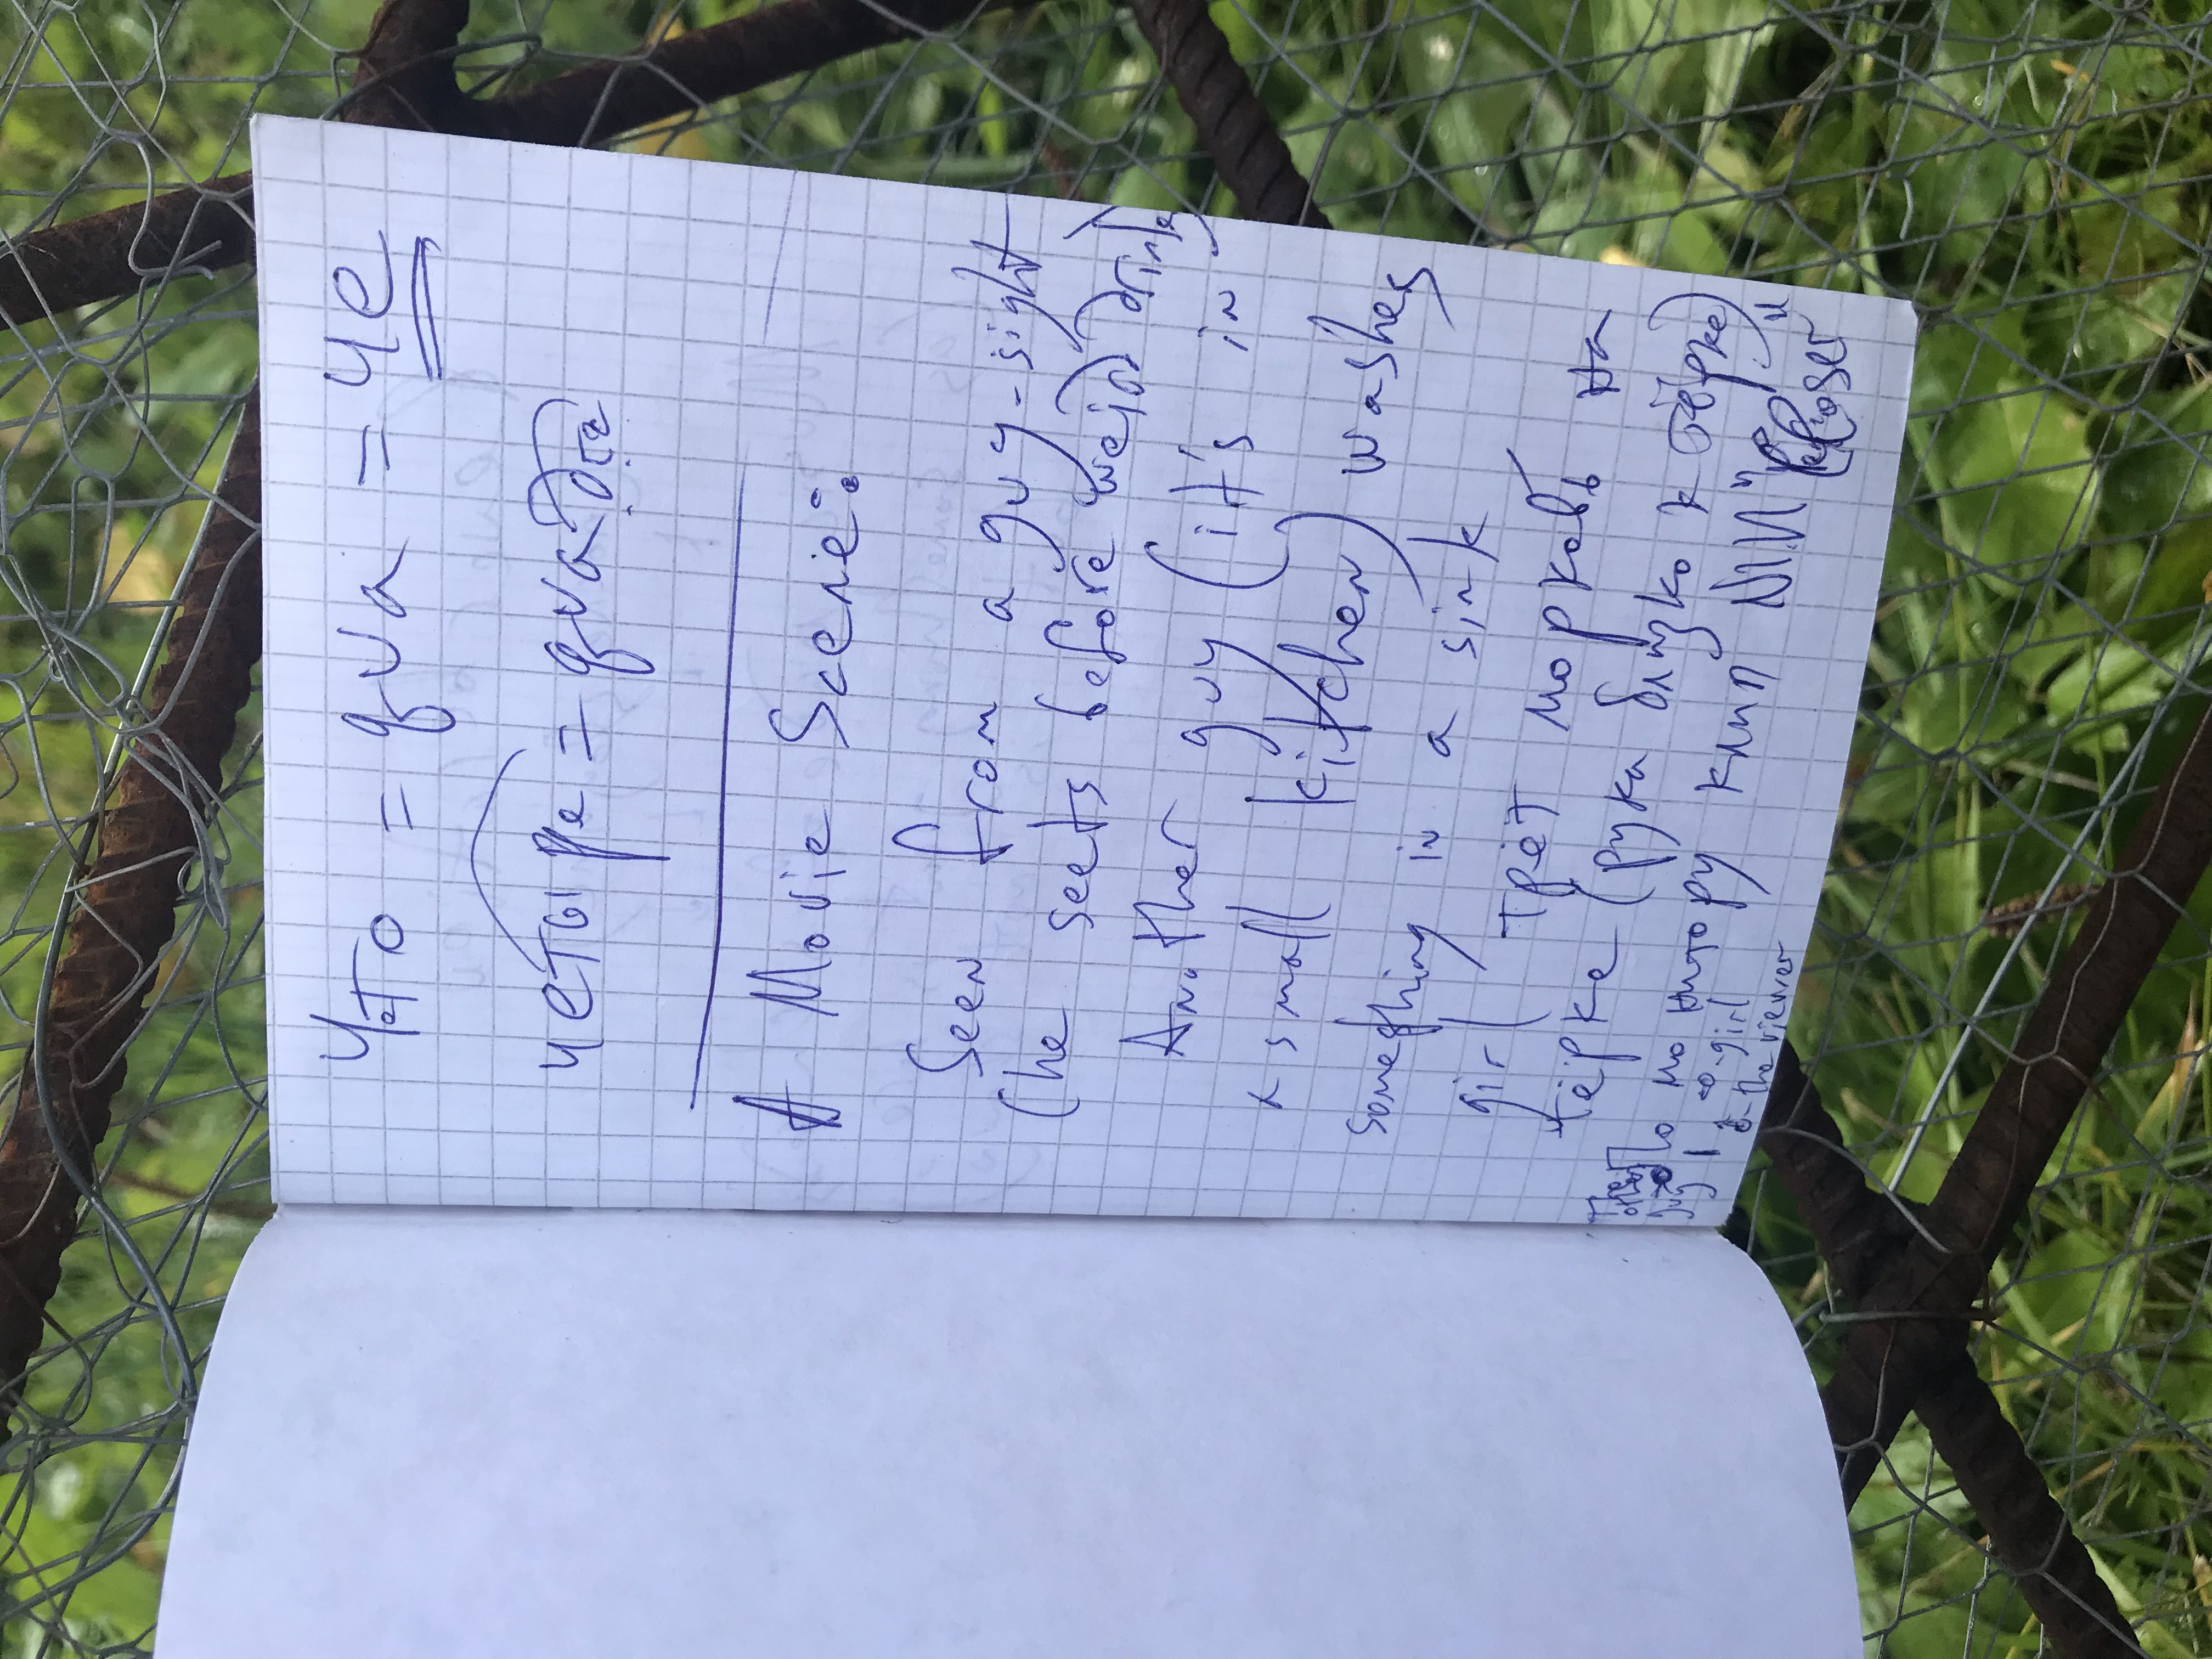 Что = qva = че
четыре = qva
A Movie Scene:
Seen from a guy-sight
(he seets before weird drink)
Another guy (it's in
a small kitchen) washes
something in a sink
girl трёт морковь на
тёрке (рука близко к тёрке)
По монитору клип NIN "Closer"
The
other
guy
o-girl
o-the viewer